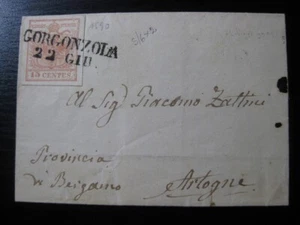 GORGONZOLA
22 GIU.
15 CENTES.
Al Sig.r Giacomo Zattini
Provincia
di Bergamo
Artogne